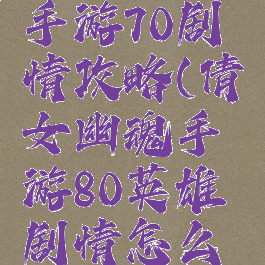 手游70剧
情攻略(倩
女幽魂手
游80英雄
剧情怎么